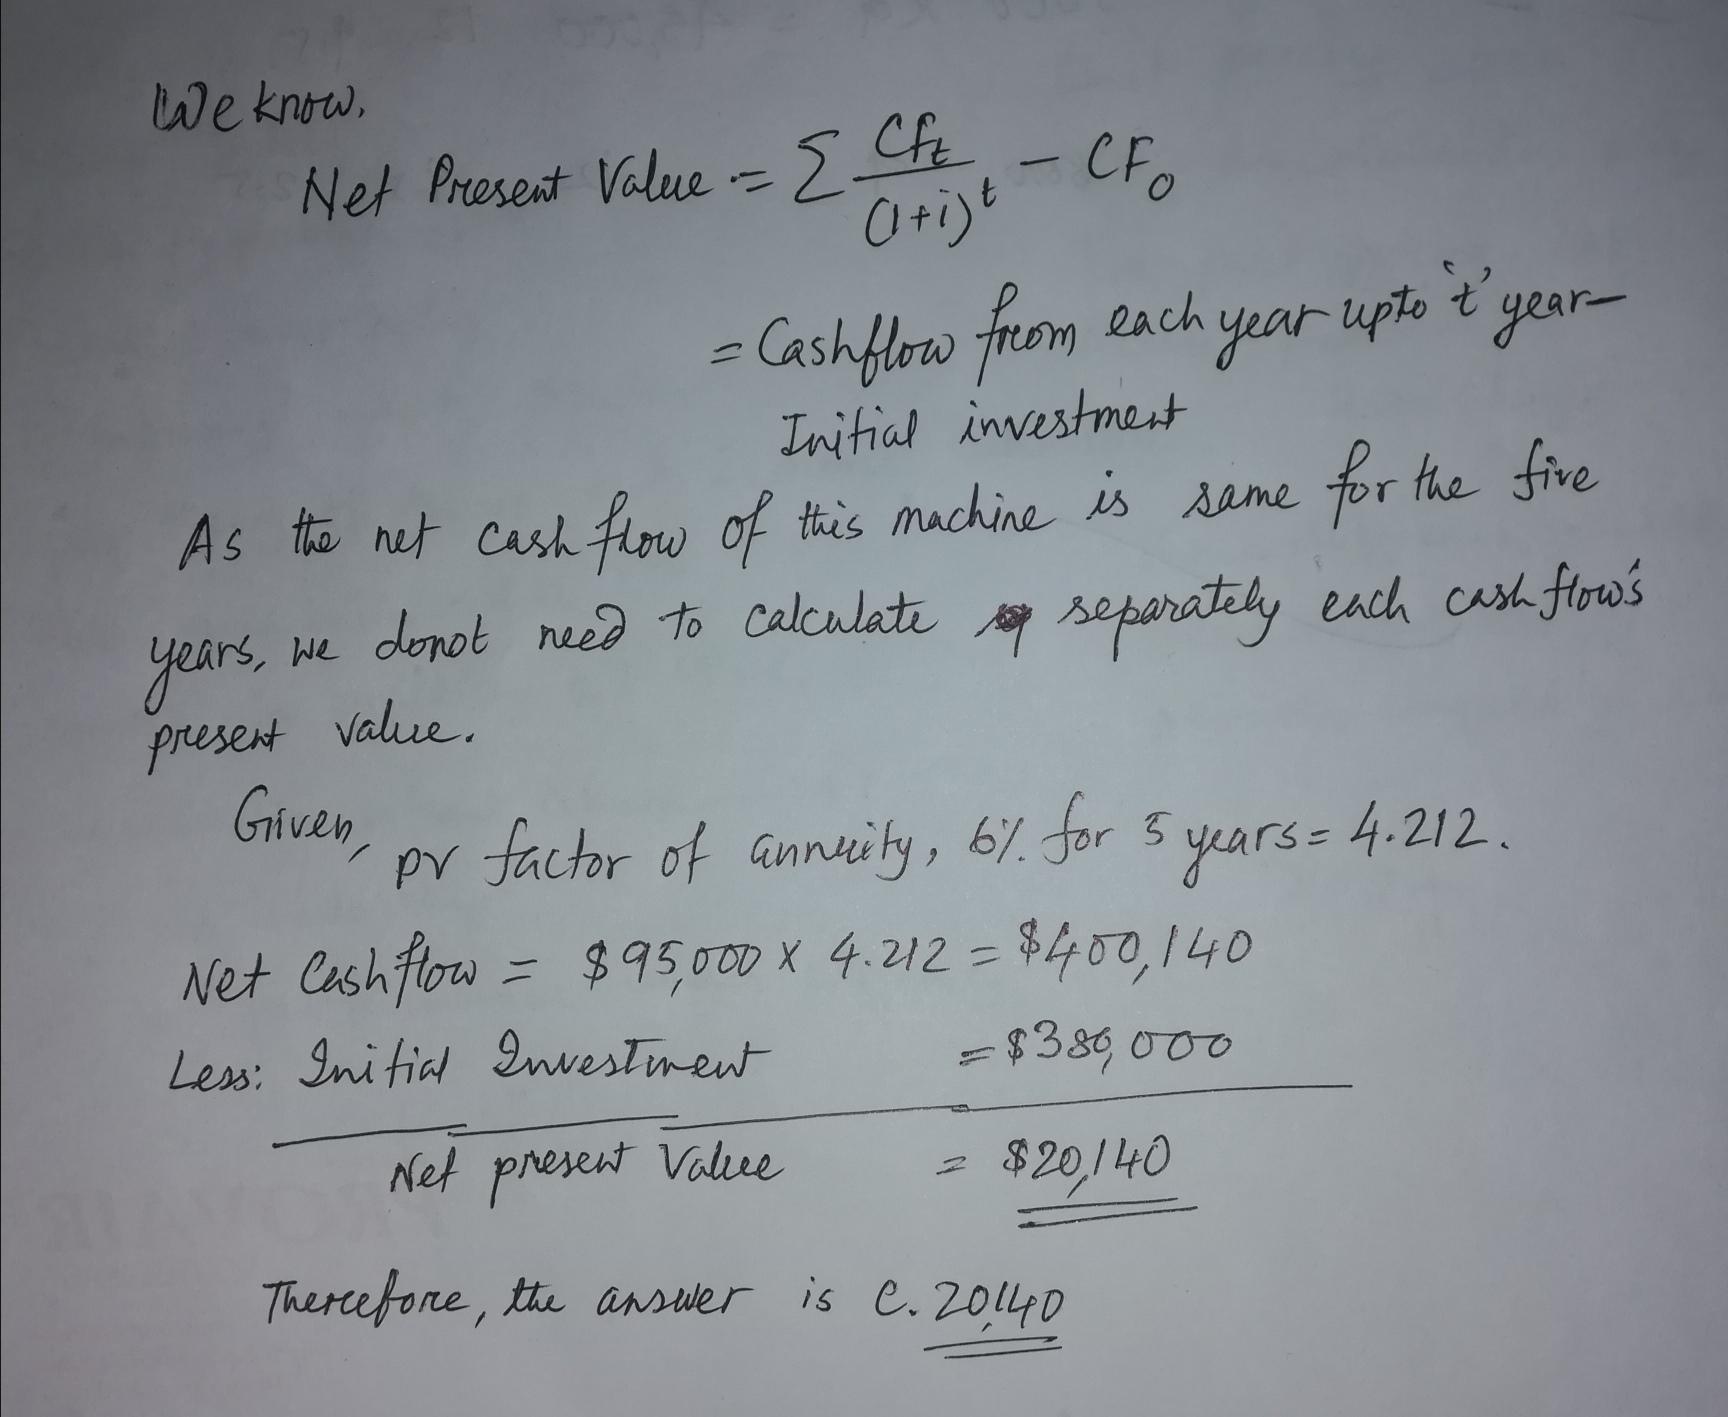 We know,
Net Present Value = Σ CFt/(1+i)^t - CF0
= Cashflow from each year upto 't' year-
Initial investment
As the net cash flow of this machine is same for the five
years, we donot need to calculate separately each cash flow's
present value.
Given, pv factor of annuity, 6% for 5 years = 4.212.
Net Cashflow = $95,000 x 4.212 = $400,140
Less: Initial Investment = $380,000
Net present Value = $20,140
Therefore, the answer is C. 20,140